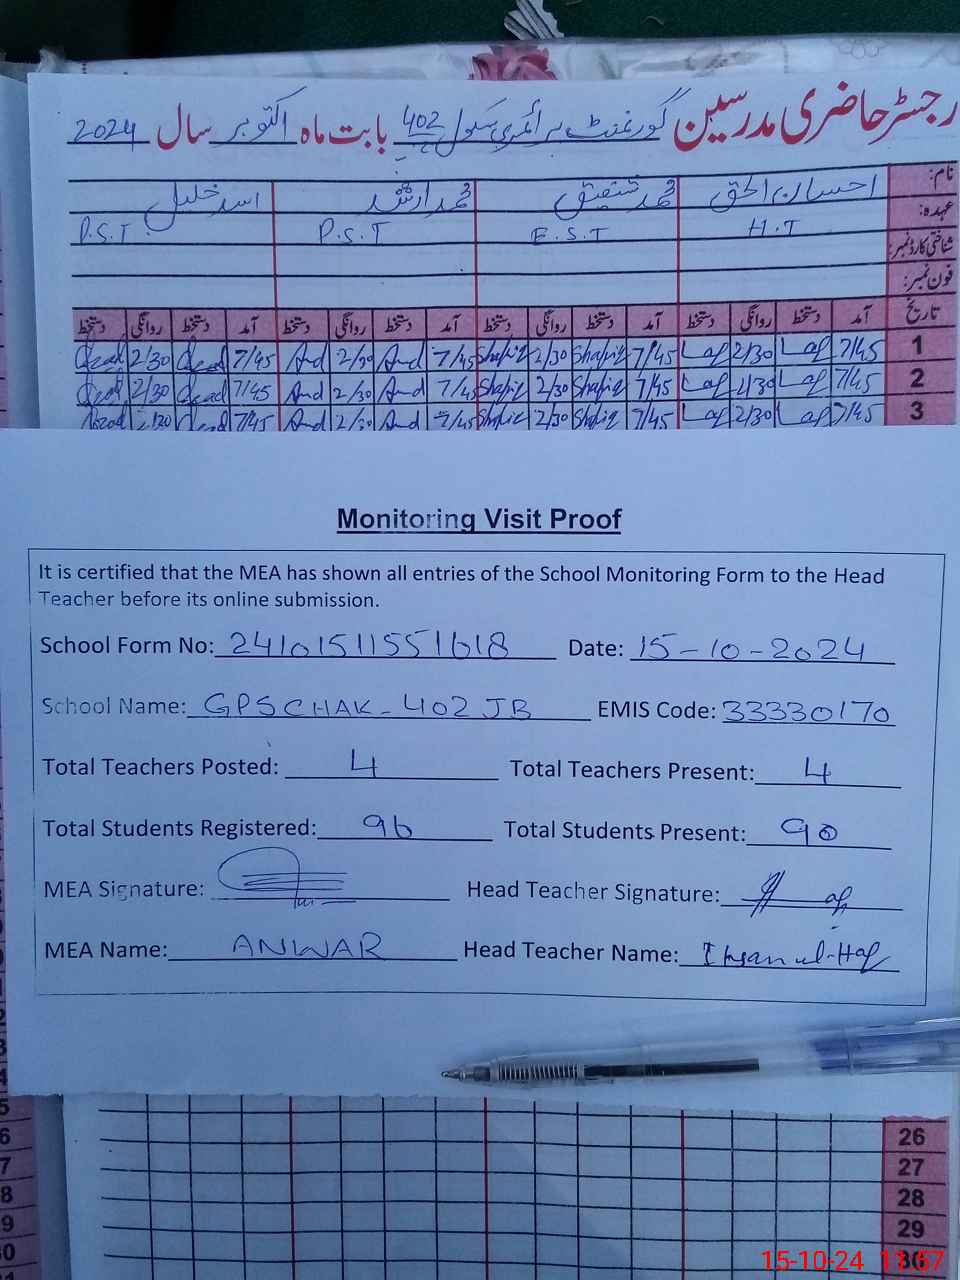 رجسٹر حاضری مدرسین گورنمنٹ پرائمری سکول 402 بابت ماہ اکتوبر سال 2024
نام: احسان الحق محمد شفیق محمد ارشد اسد خلیل
عہدہ: H.T E.S.T P.S.T P.S.T
شناختی کارڈ نمبر:
فون نمبر:
تاریخ آمد دستخط روانگی دستخط آمد دستخط روانگی دستخط آمد دستخط روانگی دستخط آمد دستخط روانگی دستخط
1 7/45 2/30 7/45 Shafiq 2/30 Shafiq 7/45 2/30 7/45 2/30
2 7/45 2/30 7/45 Shafiq 2/30 Shafiq 7/45 2/30 7/45 2/30
3 7/45 2/30 7/45 Shafiq 2/30 Shafiq 7/45 2/30 7/45 2/30
Monitoring Visit Proof
It is certified that the MEA has shown all entries of the School Monitoring Form to the Head
Teacher before its online submission.
School Form No: 24101511551618 Date: 15-10-2024
School Name: GPS CHAK-402 JB EMIS Code: 33330170
Total Teachers Posted: 4 Total Teachers Present: 4
Total Students Registered: 96 Total Students Present: 90
MEA Signature: Head Teacher Signature:
MEA Name: ANWAR Head Teacher Name: Ihsan ul-Haq
26
27
28
29
30
15-10-24 11:57